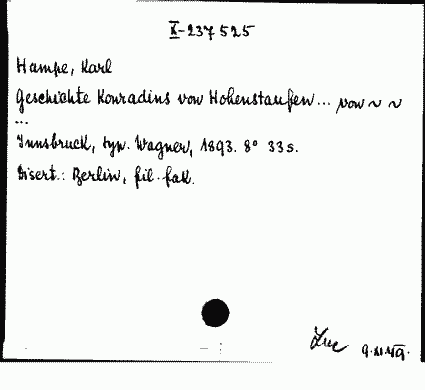 X-237525
Hampe, Karl
Geschichte Konradins von Hohenstaufen... von ~ ~
...
Innsbruck, typ. Wagner, 1893. 8° 33 s.
Disert.: Berlin, fil. fak.